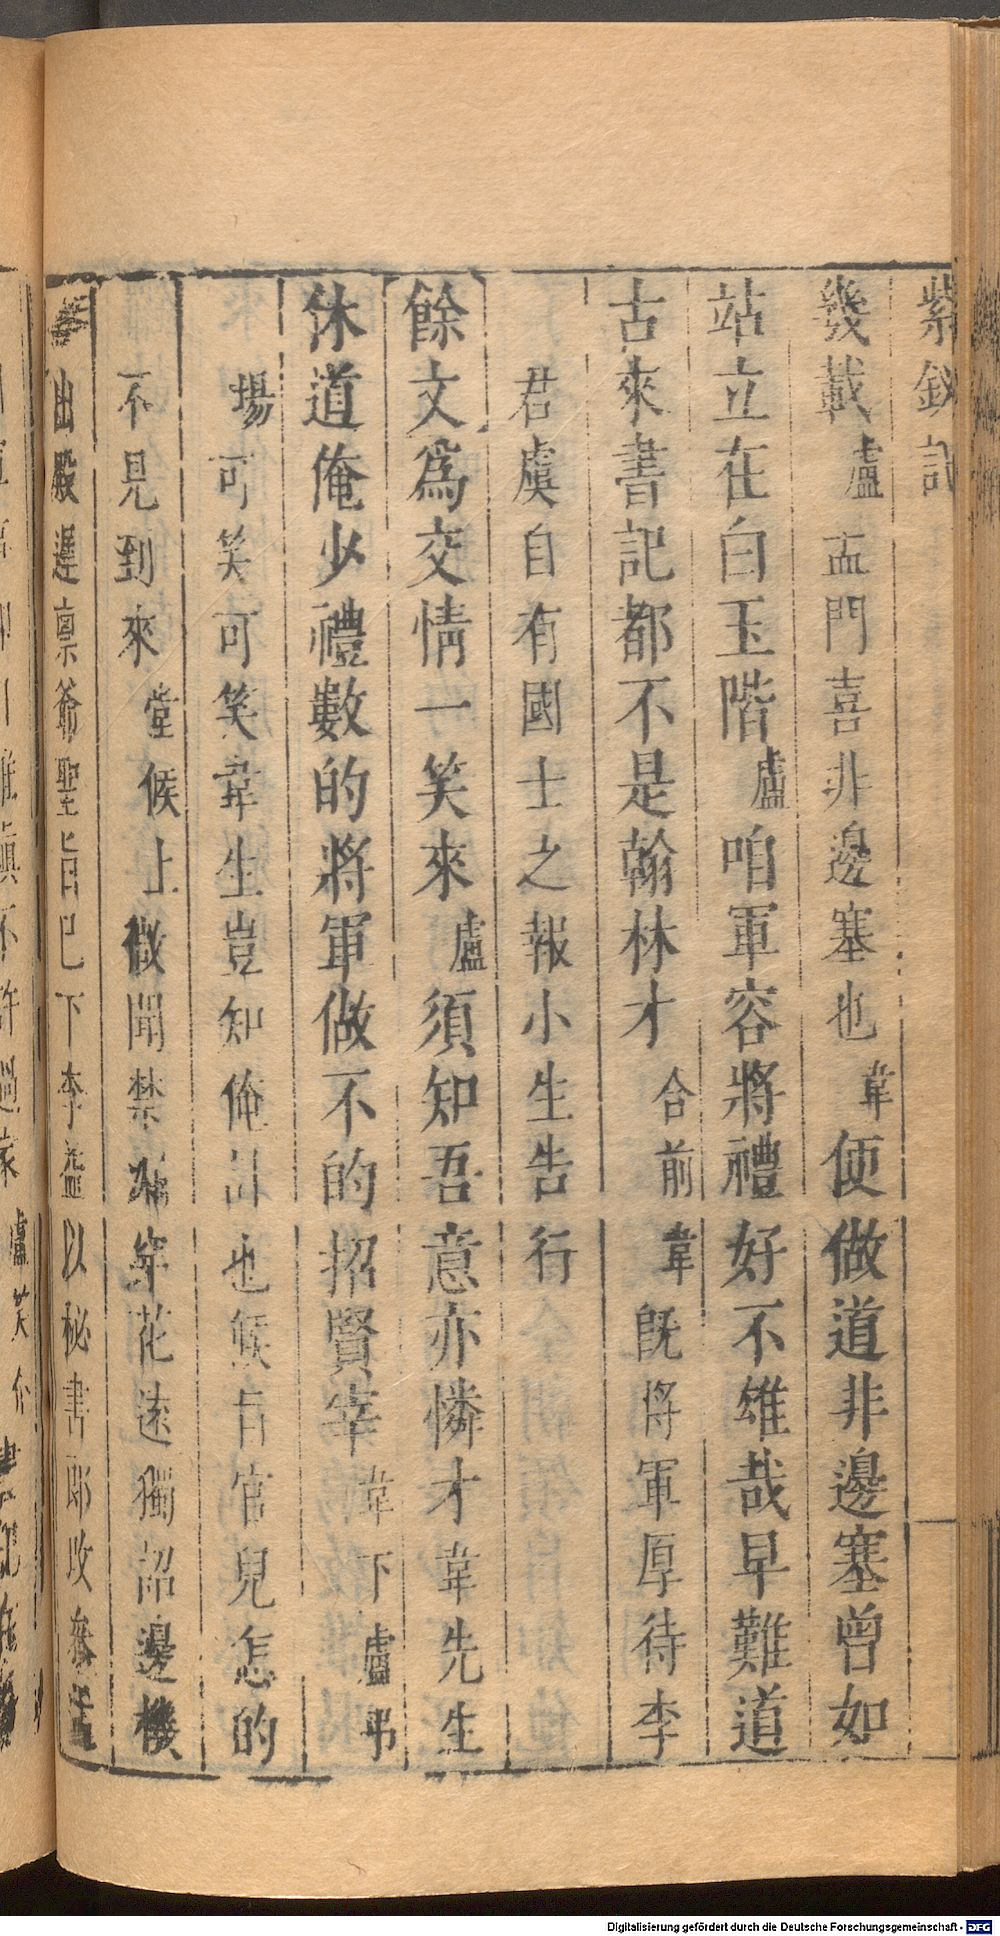 紫釵記
幾載盧孟門喜非邊塞也韋便做道非邊塞曾如
站立在白玉階盧咱軍容將禮好不雄哉早難道
古來書記都不是翰林才合前韋旣將軍厚待李
君虞自有國士之報小生告行
餘文爲交情一笑來盧須知吾意亦憐才韋先生
休道俺少禮數的將軍做不的招賢宰韋下盧弔
場可笑可笑韋生豈知俺計也候旨官兒怎的
不見到來堂候上僘聞禁漏穿花遠獨詔邊機
出殿遲稟爺聖旨已下李益以秘書郎改叅
Digitalisierung gefördert durch die Deutsche Forschungsgemeinschaft - DFG